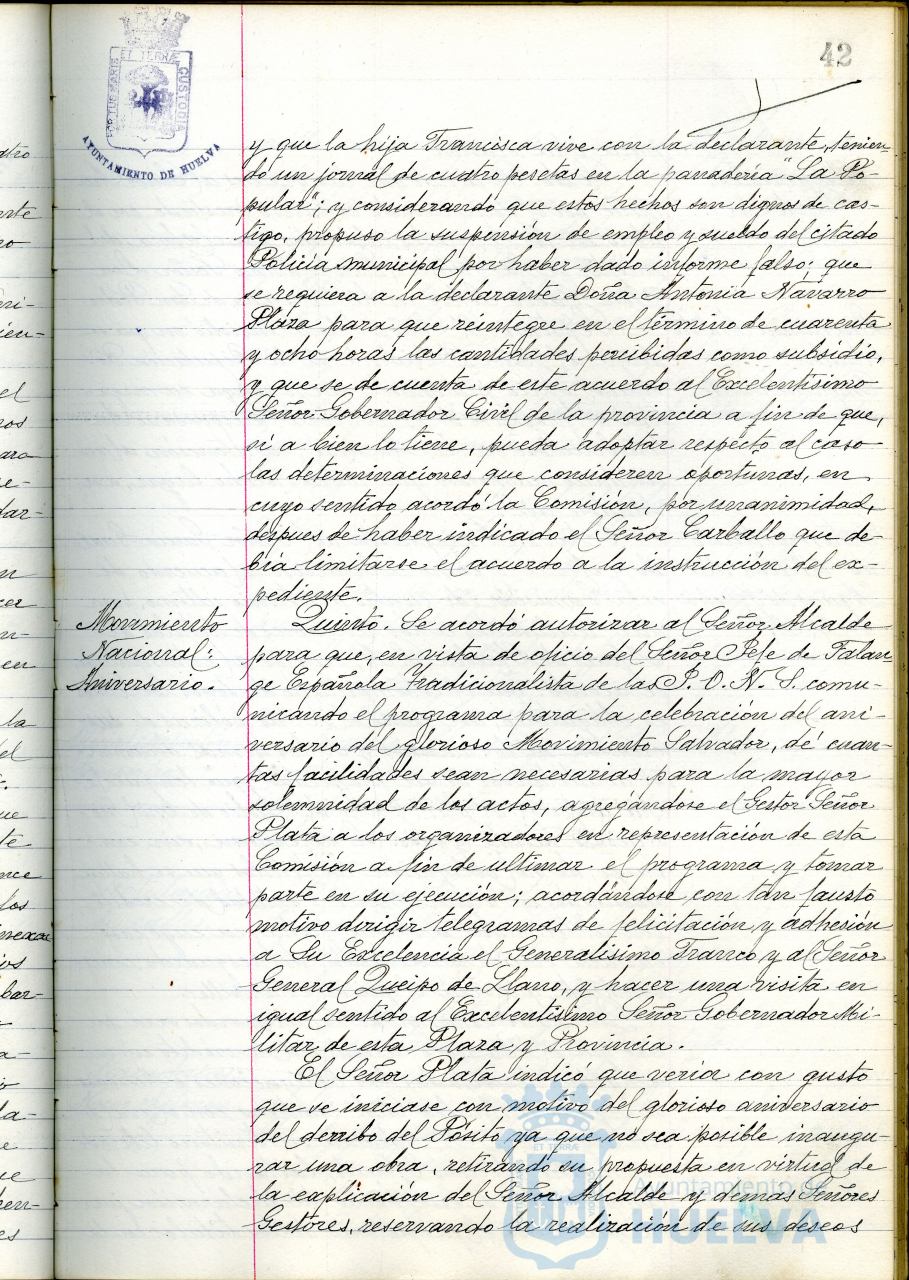 42
ET TERRÆ
PORTUS MARIS
CUSTODIA
AYUNTAMIENTO DE HUELVA
y que la hija Francisca vive con la declarante, tenien-
do un jornal de cuatro pesetas en la panadería "La Po-
pular"; y considerando que estos hechos son dignos de cas-
tigo, propuso la suspensión de empleo y sueldo del citado
Policía municipal por haber dado informe falso; que
se requiera a la declarante Doña Antonia Navarro
Plaza para que reintegre en el término de cuarenta
y ocho horas las cantidades percibidas como subsidio,
y que se de cuenta de este acuerdo al Excelentísimo
Señor Gobernador Civil de la provincia a fin de que,
si a bien lo tiene, pueda adoptar respecto al caso
las determinaciones que consideren oportunas, en
cuyo sentido acordó la Comisión, por unanimidad,
despues de haber indicado el Señor Carballo que de-
bía limitarse el acuerdo a la instrucción del ex-
pediente.
Movimiento
Nacional:
Aniversario.
Quinto. Se acordó autorizar al Señor Alcalde
para que, en vista de oficio del Señor Jefe de Falan-
ge Española Tradicionalista de las J. O. N. S. comu-
nicando el programa para la celebración del ani-
versario del glorioso Movimiento Salvador, dé cuan-
tas facilidades sean necesarias para la mayor
solemnidad de los actos, agregándose el Gestor Señor
Plata a los organizadores en representación de esta
Comisión a fin de ultimar el programa y tomar
parte en su ejecución; acordándose con tan fausto
motivo dirigir telegramas de felicitación y adhesión
a Su Excelencia el Generalísimo Franco y al Señor
General Queipo de Llano, y hacer una visita en
igual sentido al Excelentísimo Señor Gobernador Mi-
litar de esta Plaza y Provincia.
El Señor Plata indicó que vería con gusto
que se iniciase con motivo del glorioso aniversario
del derribo del Pósito ya que no sea posible inaugu-
rar una obra, retirando su propuesta en virtud de
la explicación del Señor Alcalde y demás Señores
Gestores, reservando la realización de sus deseos
ET TERRÆ
Ayuntamiento de
HUELVA